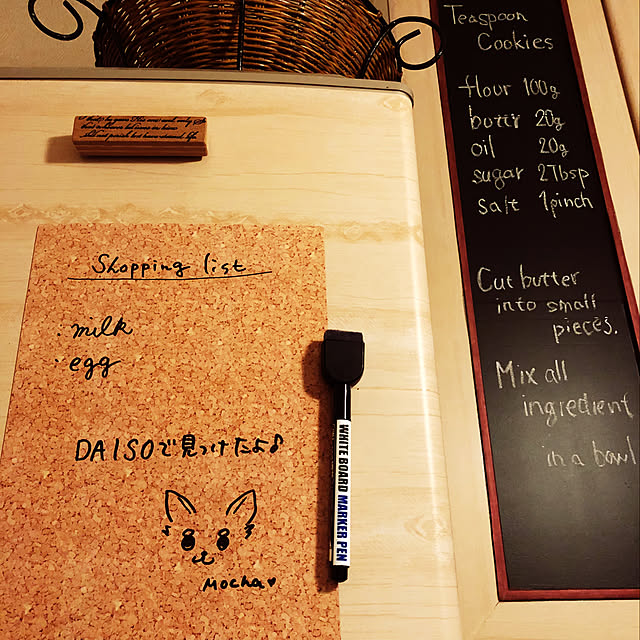 Teaspoon
Cookies
flour 100g
butter 20g
oil 20g
sugar 2Tbsp
salt 1pinch
Cut butter
into small
pieces.
Mix all
ingredient
in a bowl
Shopping list
・milk
・egg
DAISOで見つけたよ♪
Mocha♥
WHITE BOARD MARKER PEN